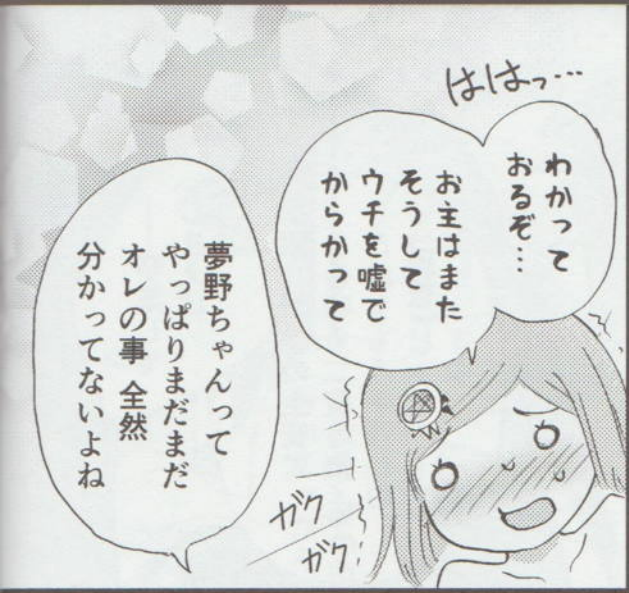 ははっ…
わかって
おるぞ…
お主はまた
そうして
ウチを嘘で
からかって
夢野ちゃんって
やっぱりまだまだ
オレの事 全然
分かってないよね
ガク
ガク